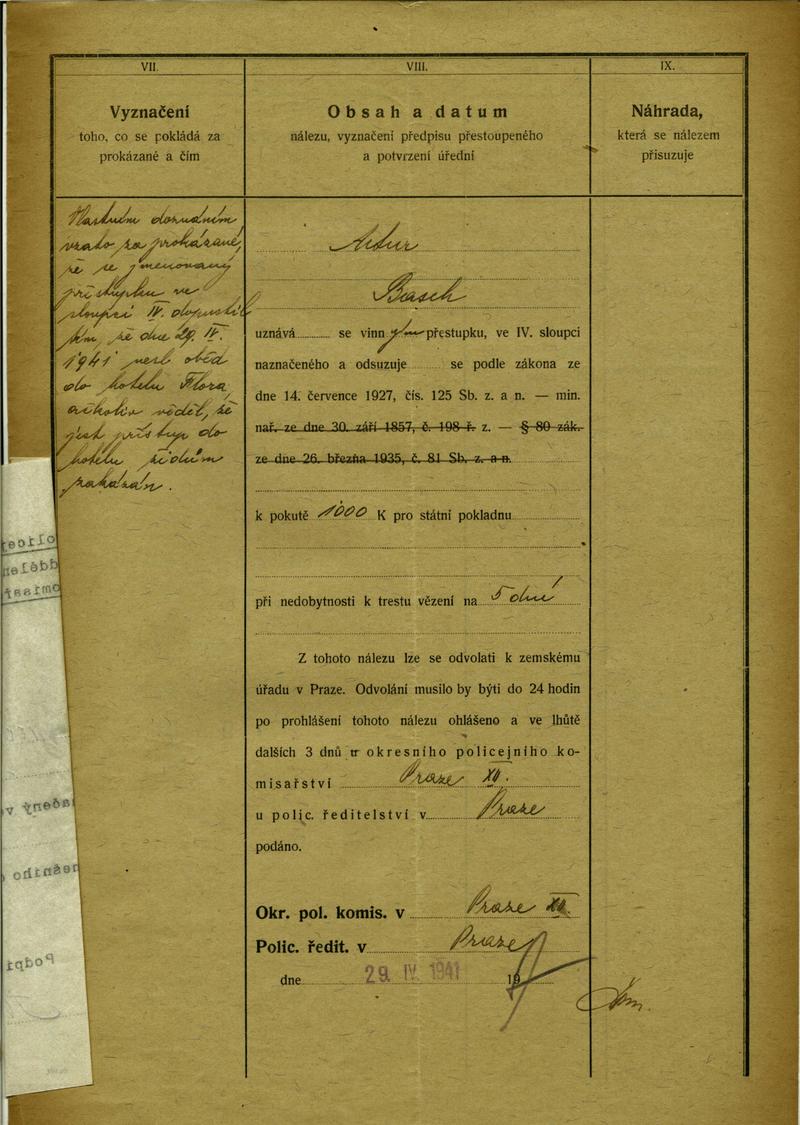 VII.
Vyznačení
toho, co se pokládá za
prokázané a čím
Vlastním doznáním
vzato za prokázané,
že se jmenovaný
přestupku ve
sloupci IV. dopustil
tím, že dne 29. IV.
1941 nesl oběd
do hotelu Flora,
ačkoliv věděl, že
jest přístup do
hotelu židům
zakázán.
VIII.
Obsah a datum
nálezu, vyznačení předpisu přestoupeného
a potvrzení úřední
Artur
Basch
uznává se vinným přestupku, ve IV. sloupci
naznačeného a odsuzuje se podle zákona ze
dne 14. července 1927, čís. 125 Sb. z. a n. — min.
nař. ze dne 30. září 1857, č. 198 ř. z. — § 80 zák.
ze dne 26. března 1935, č. 81 Sb. z. a n.
k pokutě 1000 K pro státní pokladnu
při nedobytnosti k trestu vězení na 5 dní
Z tohoto nálezu lze se odvolati k zemskému
úřadu v Praze. Odvolání musilo by býti do 24 hodin
po prohlášení tohoto nálezu ohlášeno a ve lhůtě
dalších 3 dnů u okresního policejního ko-
misařství Praze XII.
u polic. ředitelství v Praze
podáno.
Okr. pol. komis. v Praze XII.
Polic. ředit. v Praze
dne 29. IV. 1941 19
IX.
Náhrada,
která se nálezem
přisuzuje